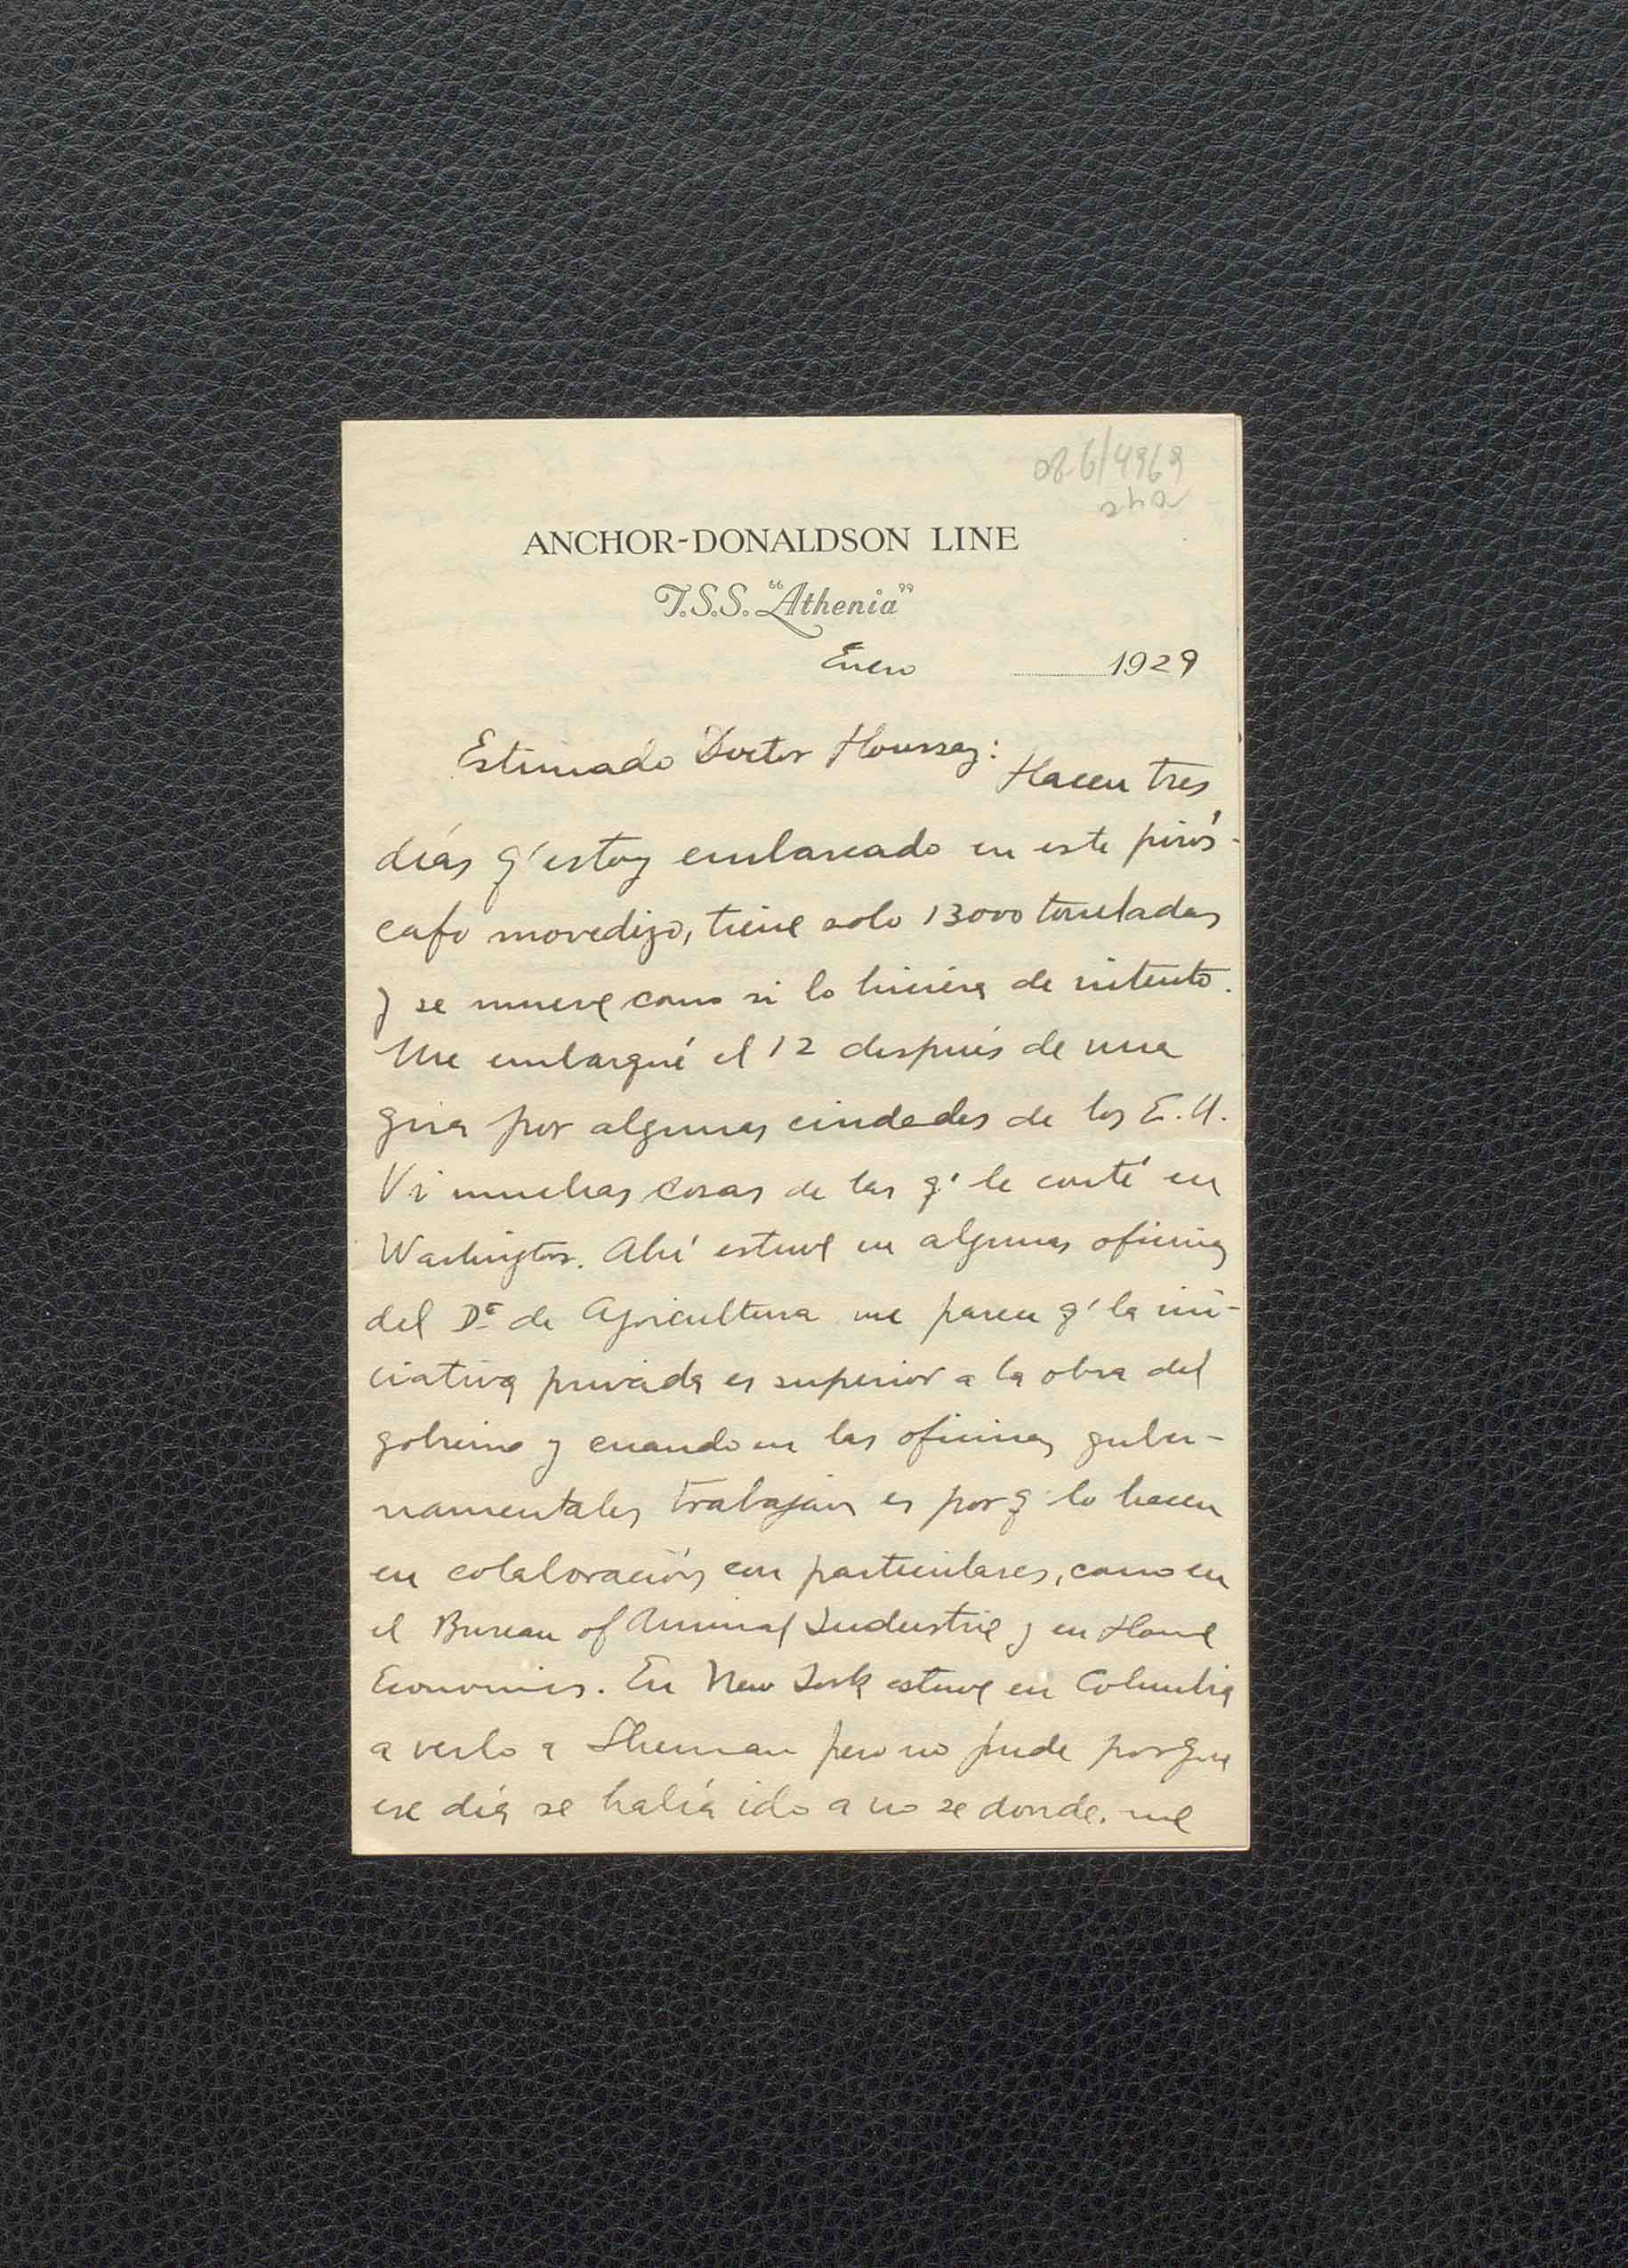 086/4969
ANCHOR-DONALDSON LINE
T.S.S. "Athenia"
Enero 1929
Estimado Doctor Houssay:
Hacen tres
días q' estoy embarcado en este pirós-
cafo movedizo, tiene solo 13000 toneladas
y se mueve como si lo hiciera de intento.
Me embarqué el 12 después de una
gira por algunas ciudades de los E.U.
Vi muchas cosas de las q' le conté en
Washington. Ahí estuve en algunas oficinas
del De de Agricultura me parece q' la ini-
ciativa privada es superior a la obra del
gobierno y cuando en las oficinas guber-
namentales trabajan es porq' lo hacen
en colaboración con particulares, como en
el Bureau of Animal Industrie y en Home
Economics. En New York estuve en Columbia
a verlo a Sherman pero no pude porque
ese día se había ido a no se donde. me